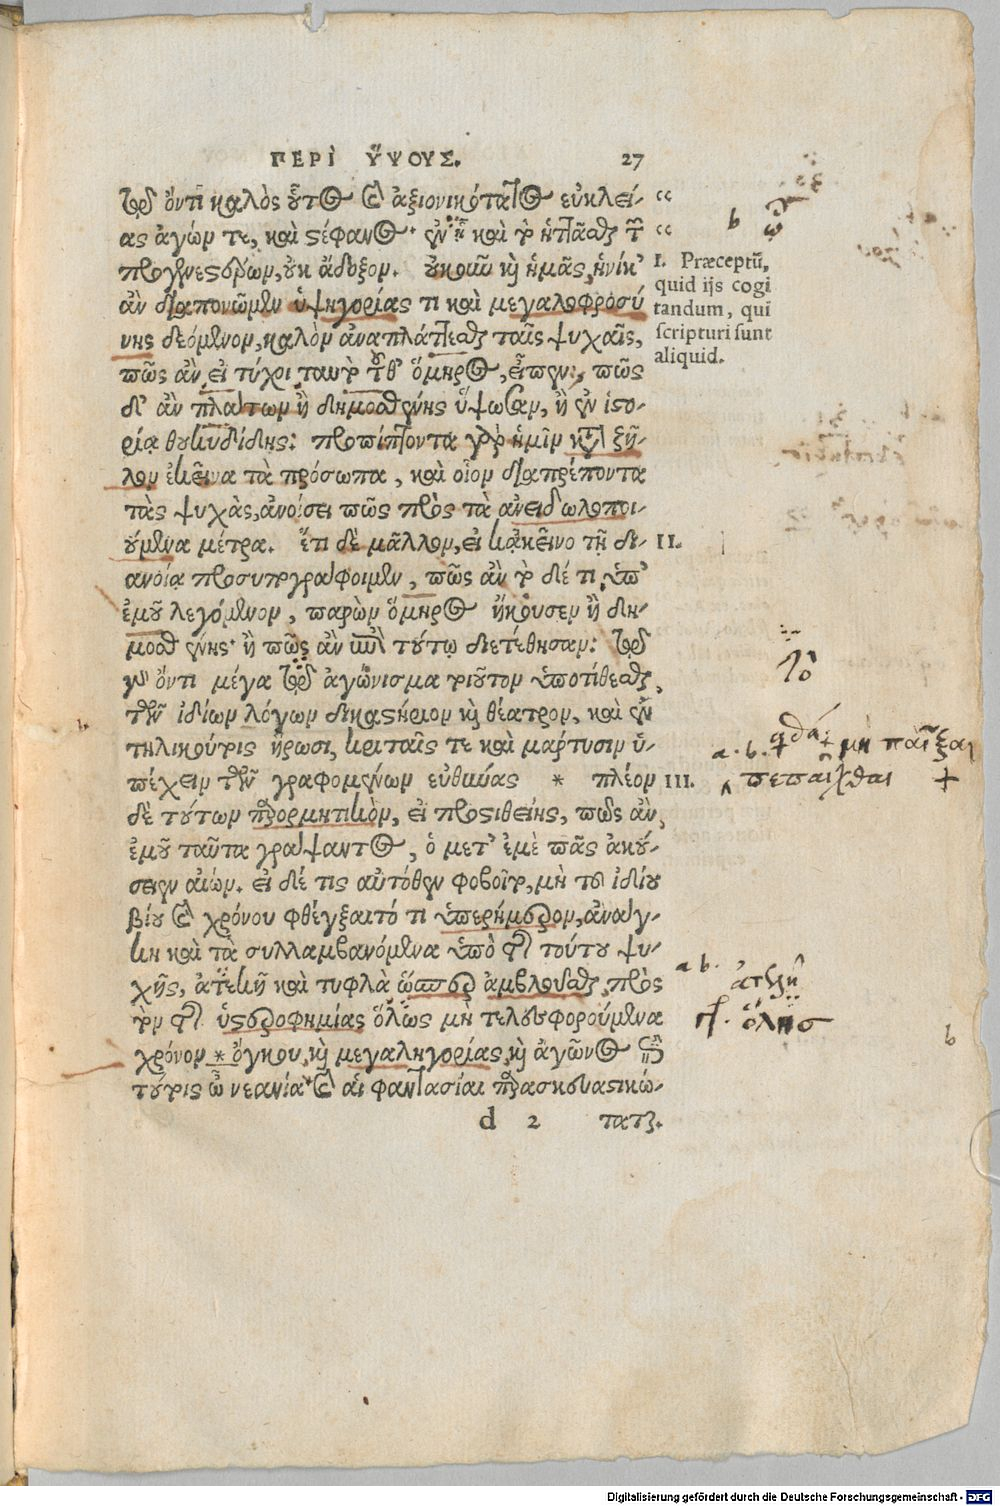 ΠΕΡῚ ὝΨΟΥΣ. 27
τῷ ὄντι καλὸς οὗτος καὶ ἀξιονικότατος εὐκλεί- “
ας ἀγών τε, καὶ στέφανος· ἐν ᾧ καὶ τὸ ἡττᾶσθαι τῶν “
προγενεστέρων, οὐκ ἄδοξον. οὐκοῦν καὶ ἡμᾶς, ἡνίκ’
ἂν διαπονῶμεν ὑψηγορίας τι καὶ μεγαλοφροσύ
νης δεόμενον, καλὸν ἀναπλάττεσθαι ταῖς ψυχαῖς,
πῶς ἂν εἰ τύχοι ταυτὸ τοῦθ’ ὅμηρος, εἶπεν; πῶς
δ’ ἂν πλάτων ἢ δημοσθένης ὕψωσαν, ἢ ἐν ἱστο-
ρίᾳ θουκυδίδης; προπίπτοντα γὰρ ἡμῖν κατὰ ζῆ-
λον ἐκεῖνα τὰ πρόσωπα, καὶ οἷον διαπρέποντα
τὰς ψυχὰς, ἀνοίσει πῶς πρὸς τὰ ἀνειδωλοποι-
ούμενα μέτρα. ἔτι δὲ μᾶλλον, εἰ κἀκεῖνο τῇ δι-
ανοίᾳ προσυπογράφοιμεν, πῶς ἂν τό δέ τι, ὑπ’
ἐμοῦ λεγόμενον, παρὼν ὅμηρος ἤκουσεν ἢ δη-
μοσθένης· ἢ πῶς ἂν ἐπὶ τούτῳ διετέθησαν; τῷ
γὰρ ὄντι μέγα τὸ ἀγώνισμα τοιοῦτον ὑποτίθεσθαι,
τῶν ἰδίων λόγων δικαστήριον καὶ θέατρον, καὶ ἐν
τηλικούτοις ἥρωσι, κριταῖς τε καὶ μάρτυσιν ὑ-
πέχειν τῶν γραφομένων εὐθύνας * πλέον
δὲ τούτων προτρεπτικὸν, εἰ προστιθείης, πῶς ἂν,
ἐμοῦ ταῦτα γράψαντος, ὁ μετ’ ἐμὲ πᾶς ἀκού-
σειεν αἰών. εἰ δέ τις αὐτόθεν φοβοῖτ’, μὴ τοῦ ἰδίου
βίου καὶ χρόνου φθέγξαιτό τι ὑπερήμερον, ἀνάγ-
κη καὶ τὰ συλλαμβανόμενα ὑπὸ τῆς τούτου ψυ-
χῆς, ἀτελῆ καὶ τυφλὰ ὥσπερ ἀμβλοῦσθαι, πρὸς
τὸν τῆς ὑστεροφημίας ὅλως μὴ τελεσφορούμενα
χρόνον * ὄγκου, καὶ μεγαληγορίας, καὶ ἀγῶνος ἐπὶ
τούτοις ὦ νεανία καὶ αἱ φαντασίαι παρασκευαστικώ-
d 2 ταται.
I. Præceptũ,
quid ijs cogi
tandum, qui
scripturi sunt
aliquid.
II.
III.
b ᾧ
τὸ
a. b. μὴ παῖξαι
πεπαῖχθαι
a b. ἀτελῆ
ὅλης
b
Digitalisierung gefördert durch die Deutsche Forschungsgemeinschaft - DFG